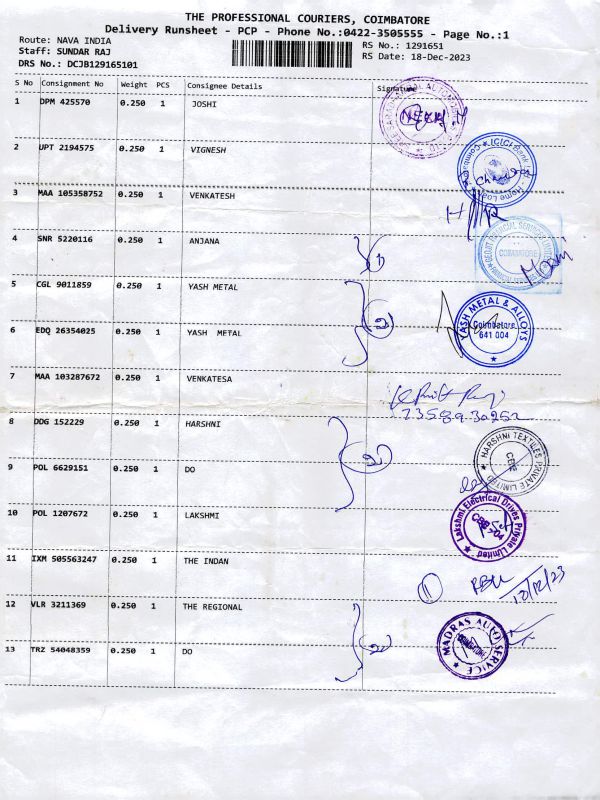 THE PROFESSIONAL COURIERS, COIMBATORE
Delivery Runsheet - PCP - Phone No.:0422-3505555 - Page No.:1
Route: NAVA INDIA
RS No.: 1291651
Staff: SUNDAR RAJ
RS Date: 18-Dec-2023
DRS No.: DCJB129165101
S No Consignment No Weight PCS Consignee Details Signature
1 DPM 425570 0.250 1 JOSHI
2 UPT 2194575 0.250 1 VIGNESH
3 MAA 105358752 0.250 1 VENKATESH
4 SNR 5220116 0.250 1 ANJANA
COIMBATORE
5 CGL 9011859 0.250 1 YASH METAL
YASH METAL & ALLOYS
Coimbatore
641 004
6 EDQ 26354025 0.250 1 YASH METAL
7 MAA 103287672 0.250 1 VENKATESA
8 DDG 152229 0.250 1 HARSHNI
HARSHNI TEXTILES PRIVATE LIMITED
9 POL 6629151 0.250 1 DO
10 POL 1207672 0.250 1 LAKSHMI
Lakshmi Electrical Drives Private Limited
11 IXM 505563247 0.250 1 THE INDAN
1
12 VLR 3211369 0.250 1 THE REGIONAL
MADRAS AUTO SERVICE
13 TRZ 54048359 0.250 1 DO